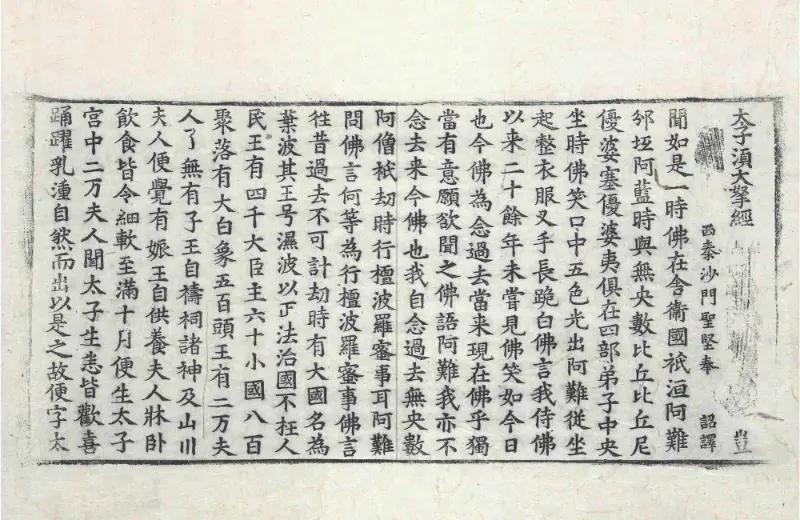 太子湏大拏經
豈
西秦沙門聖堅奉 詔譯
聞如是一時佛在舎衛國祇洹阿難
邠坻阿藍時與無央數比丘比丘尼
優婆塞優婆夷俱在四部弟子中央
坐時佛笑口中五色光出阿難從坐
起整衣服叉手長跪白佛言我侍佛
以来二十餘年未甞見佛笑如今日
也今佛為念過去當来現在佛乎獨
當有意願欲聞之佛語阿難我亦不
念去来今佛也我自念過去無央數
阿僧祇劫時行檀波羅蜜事耳阿難
問佛言何等為行檀波羅蜜事佛言
往昔過去不可計劫時有大國名為
葉波其王号濕波以正法治國不枉人
民王有四千大臣王六十小國八百
聚落有大白象五百頭王有二万夫
人了無有子王自禱祠諸神及山川
夫人便覺有娠王自供養夫人牀卧
飲食皆令細軟至滿十月便生太子
宮中二万夫人聞太子生悉皆歡喜
踊躍乳湩自然而出以是之故便字太